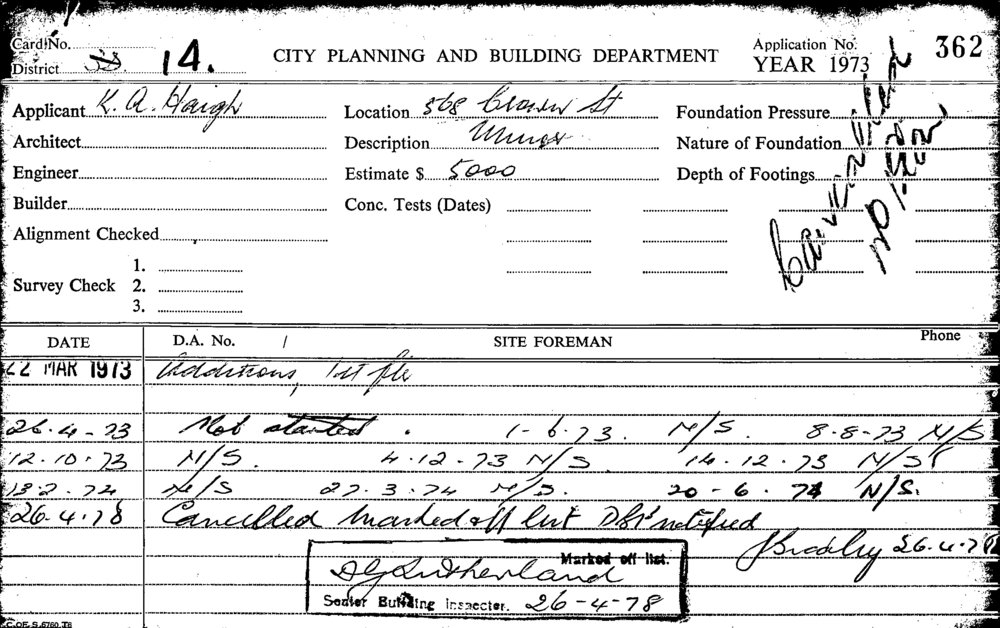 Card No.
District 14.
CITY PLANNING AND BUILDING DEPARTMENT
Application No. 362
YEAR 1973
Applicant K. A. Haigh
Location 568 Crown St
Foundation Pressure
Architect
Description Minor
Nature of Foundation
Engineer
Estimate $ 5000
Depth of Footings
Builder
Conc. Tests (Dates)
Alignment Checked
Survey Check 1. 2. 3.
DATE D.A. No. / SITE FOREMAN Phone
22 MAR 1973 Additions, 1st flr
26.4-73 Not started. 1-6.73. N/S. 8-8-73 N/S
12.10.73 N/S. 4.12.73 N/S 14.12.73 N/S
13.2.74 N/S 27.3.74 N/S. 20-6.74 N/S.
26.4.78 Cancelled marked off list notified
J Bradley 26.4.78
Marked off list.
Sutherland
Senior Building Inspector. 26-4-78
C. OF S. 6760.T8